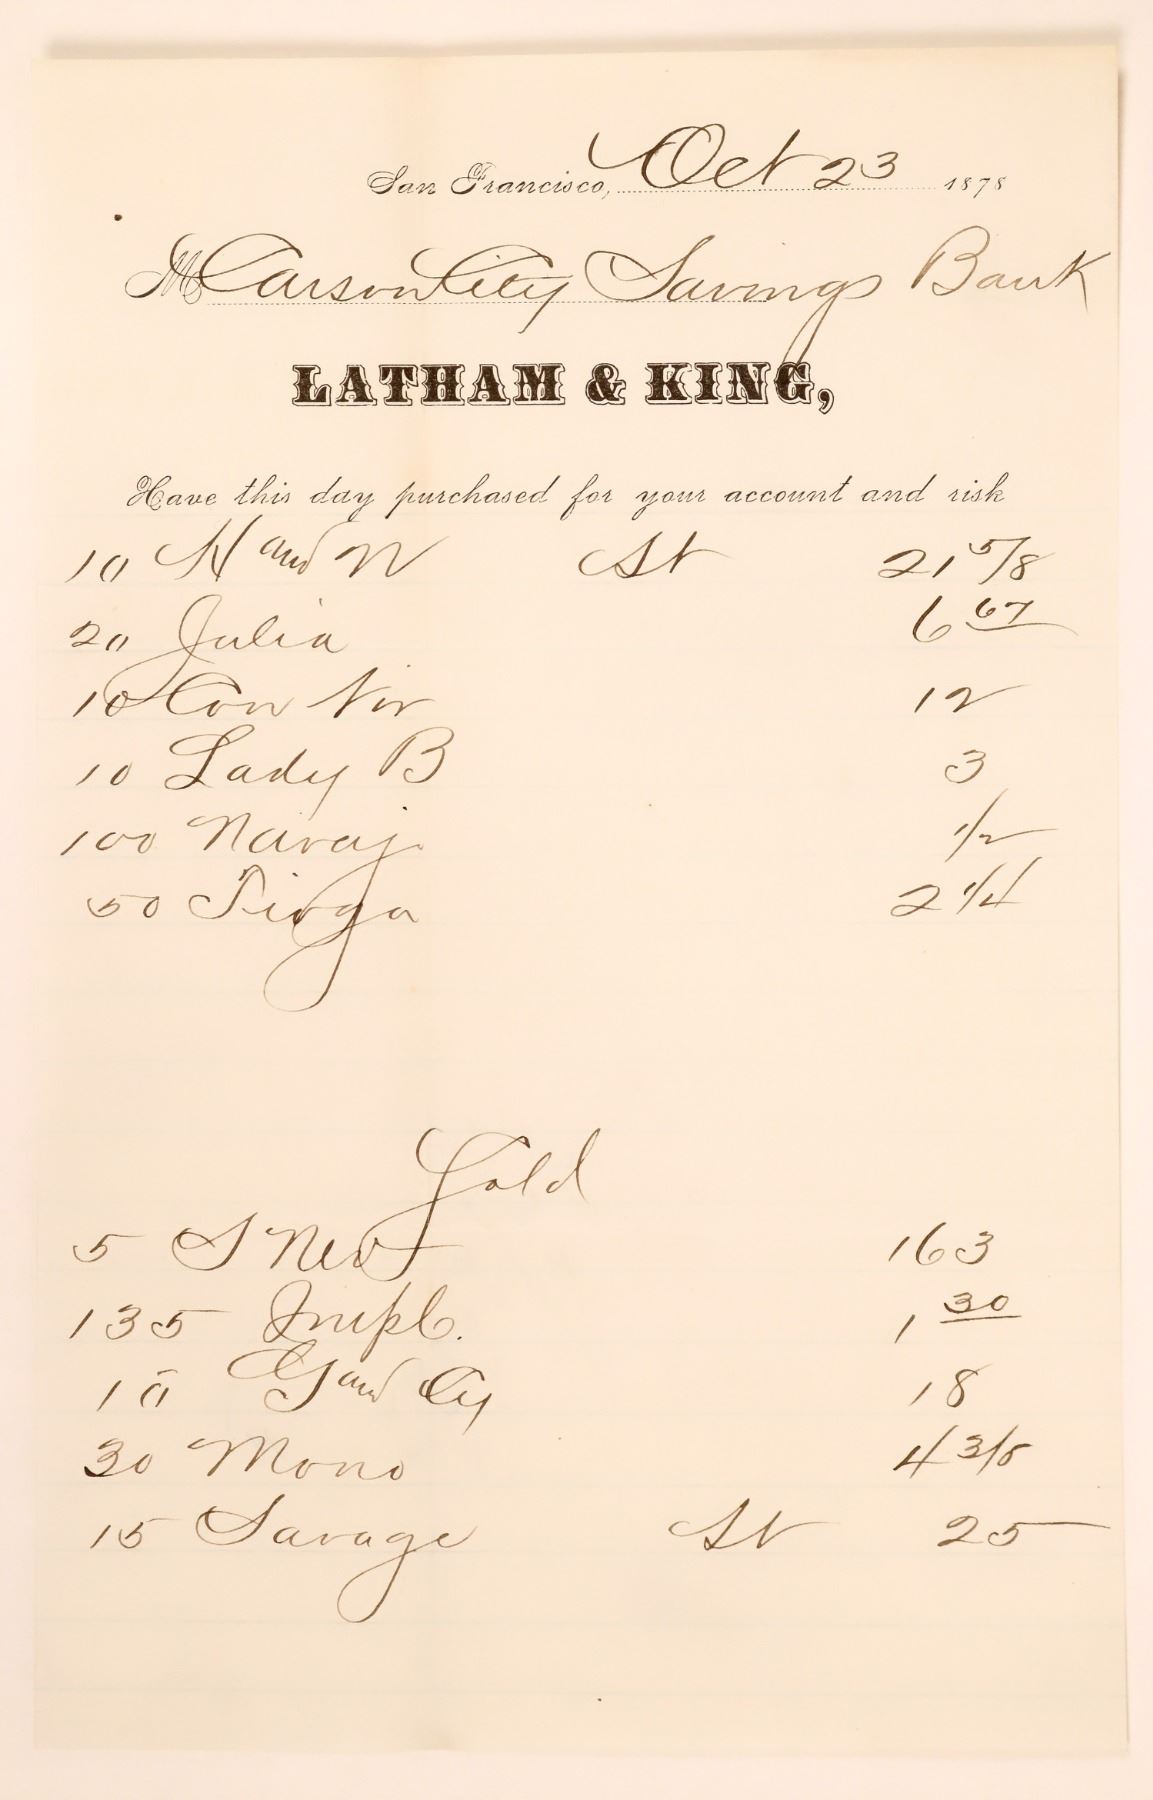 San Francisco, Oct 23 1878
M Carson City Savings Bank
LATHAM & KING,
Have this day purchased for your account and risk
10 H and N St 21 5/8
20 Julia 6 67
10 Con Vir 12
10 Lady B 3
100 Navajo 1/2
50 Tioga 2 1/4
Sold
5 S Nev 163
135 Impl. 1 30
10 G and Cy 18
30 Mono 4 3/8
15 Savage St 25